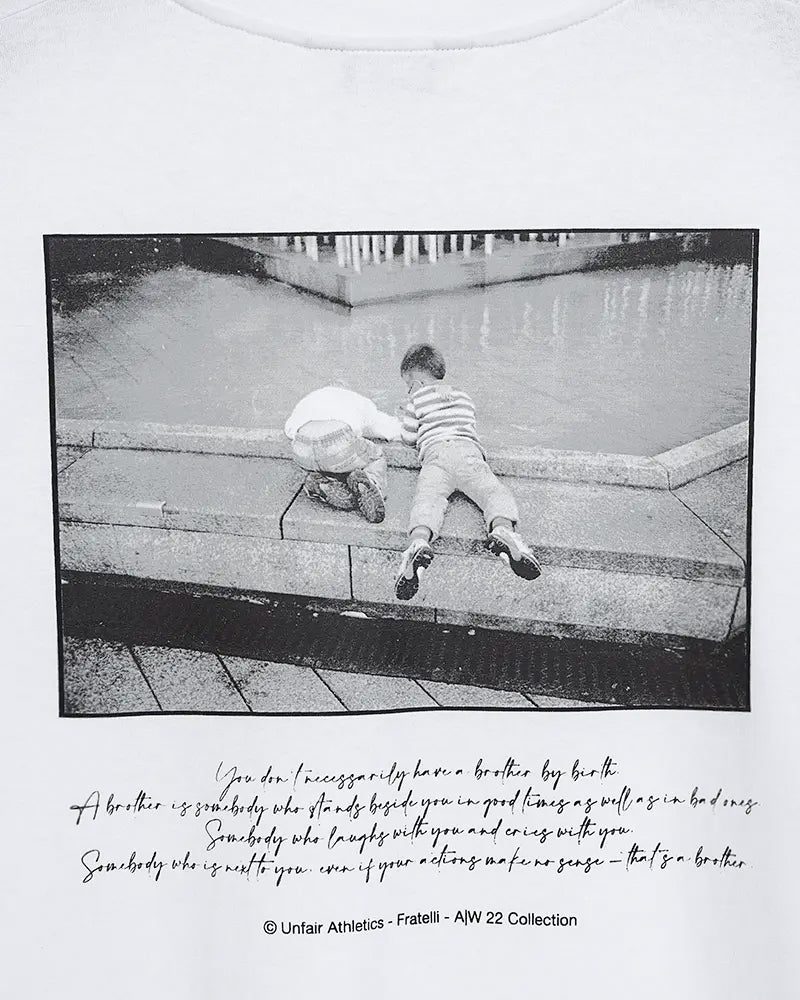 You don't necessarily have a brother by birth.
A brother is somebody who stands beside you in good times as well as in bad ones.
Somebody who laughs with you and cries with you.
Somebody who is next to you. even if your actions make no sense – that's a brother.
© Unfair Athletics - Fratelli - A|W 22 Collection